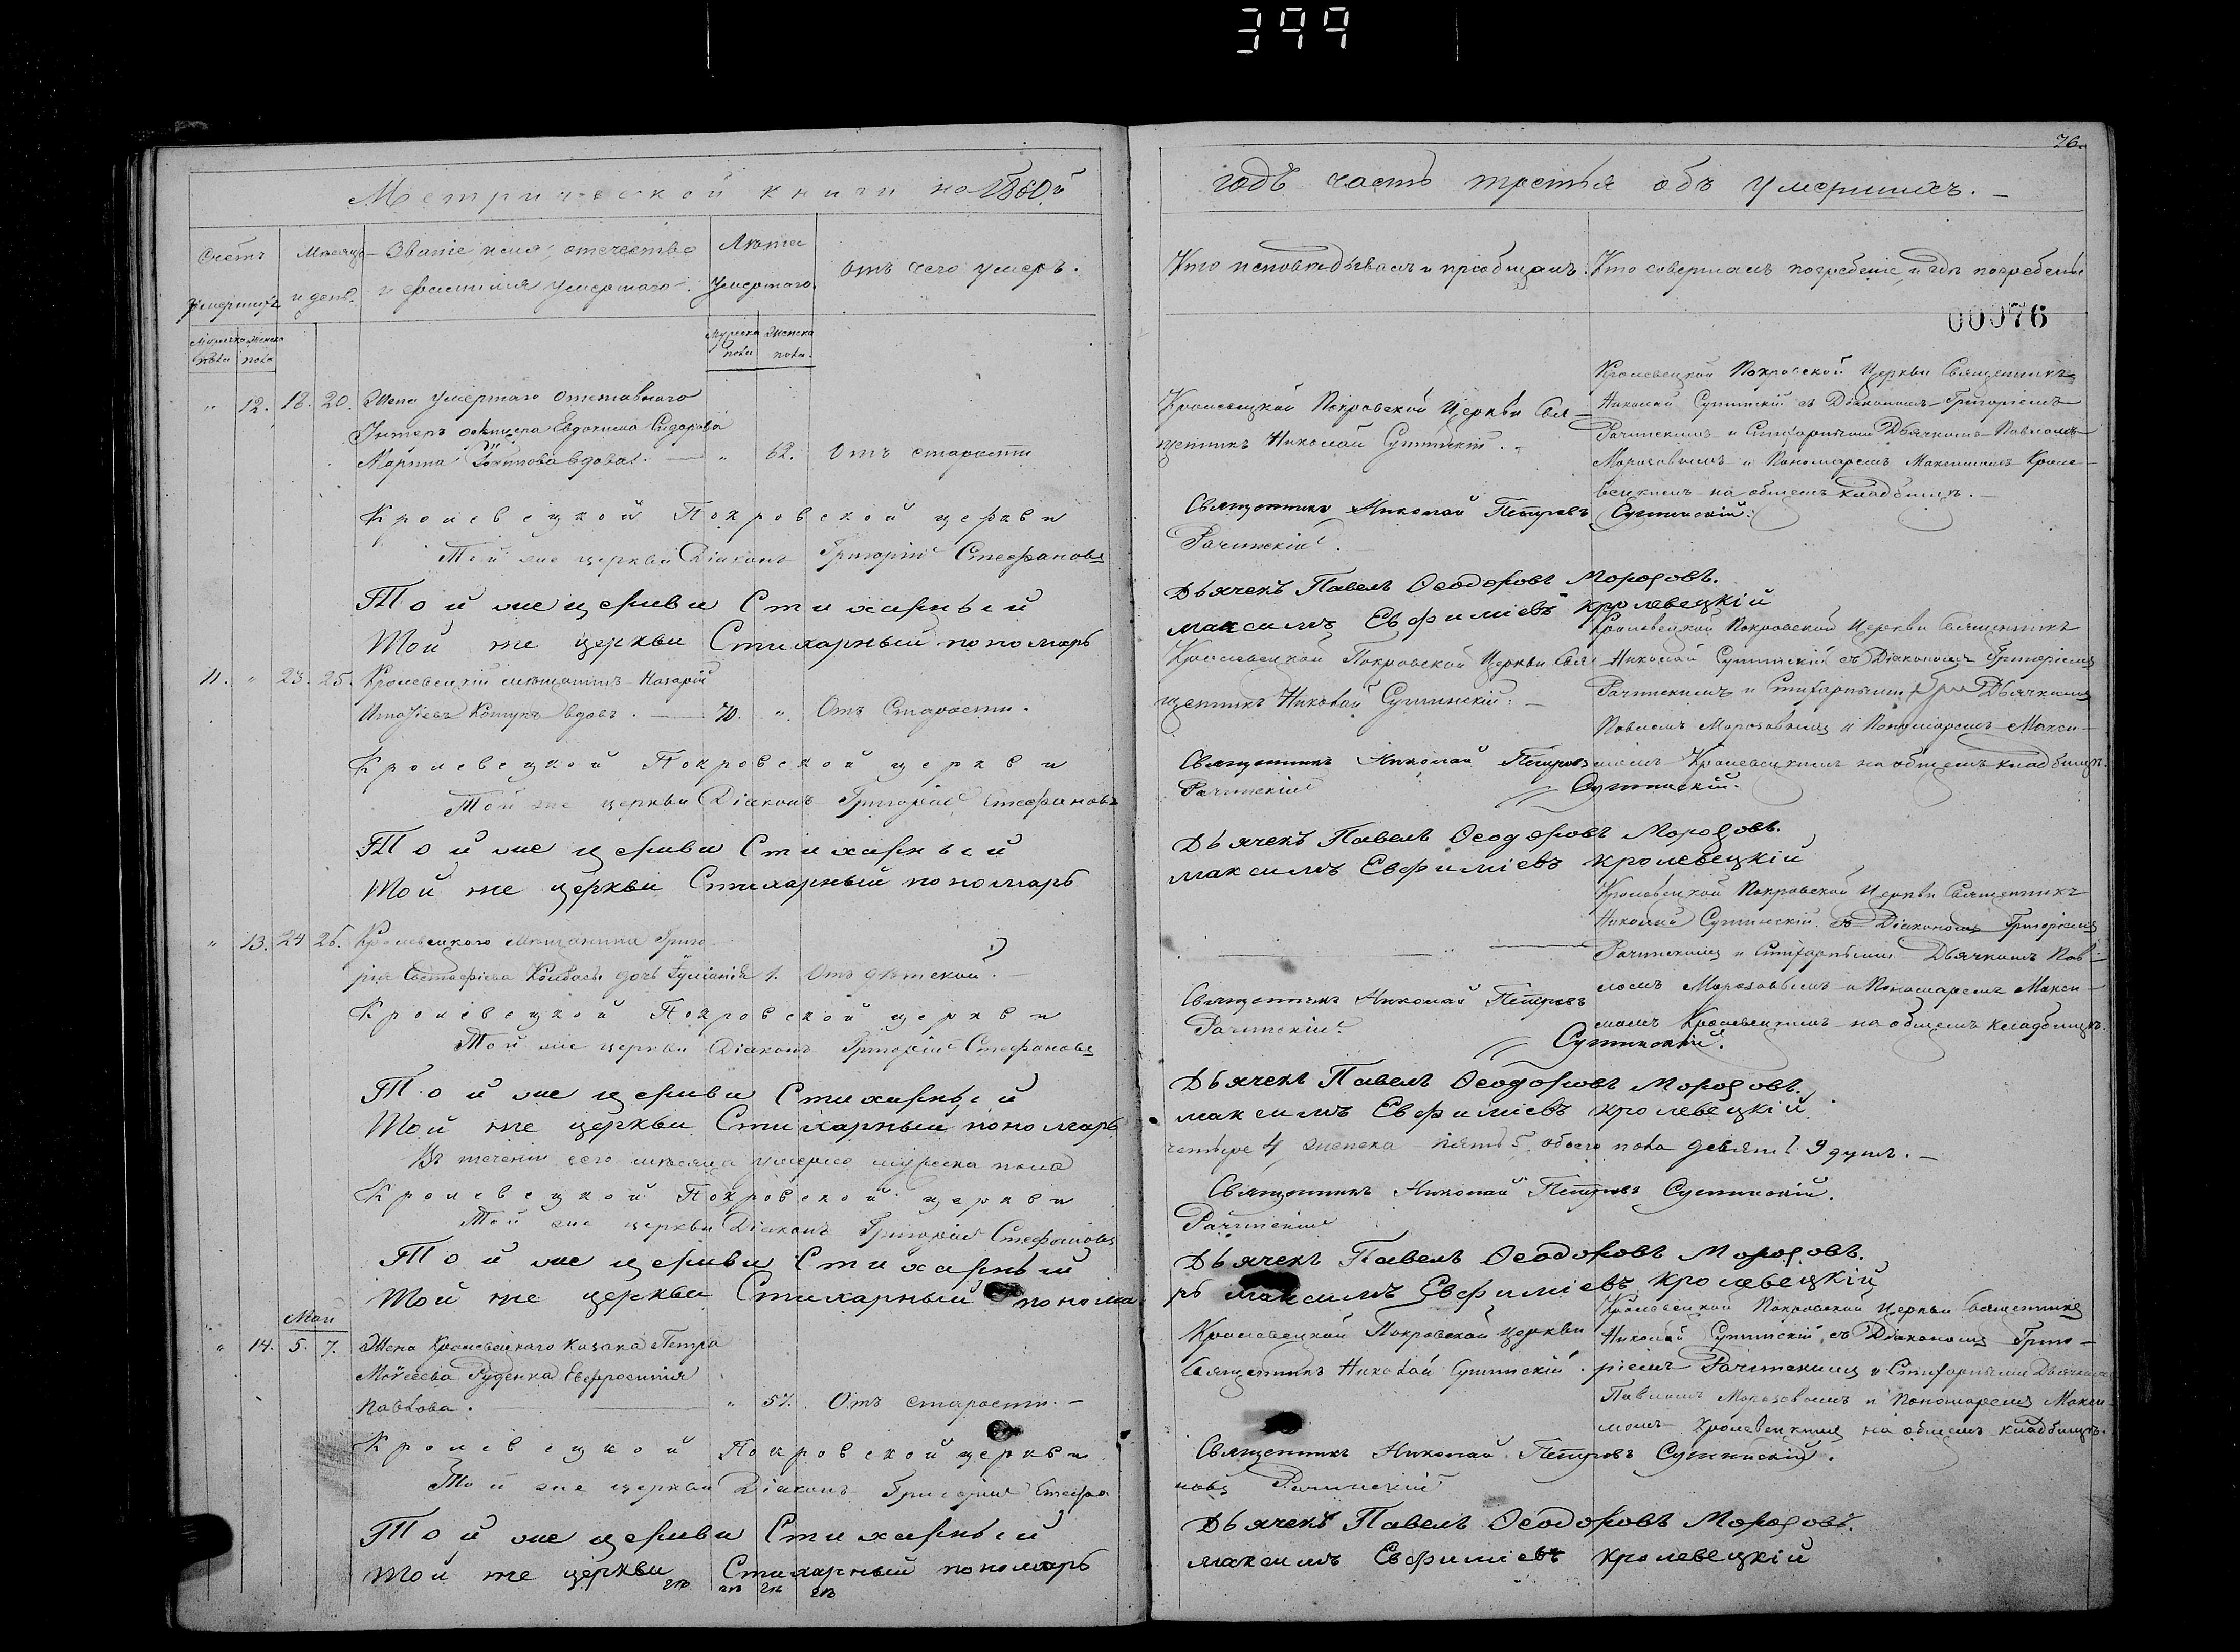 399
76.
Метрической книги на 1860й
годъ часть третья объ умершихъ.
Счетъ умершихъ
Мужеска пола
Женска пола
Мѣсяцъ и день
Званіе имя, отечество
и фамилія умершаго
Лѣта умершаго
Мужеска пола
Женска пола
отъ чего умеръ.
Кто исповѣдывалъ и пріобщалъ.
Кто совершалъ погребеніе, и гдѣ погребены
00076
" 12. 18. 20. Жена умершаго отставного
Унтеръ офицера Евдокима Сидорова
Марина вдова. " 62. Отъ старости
Кролевецкой Покровской Церкви Свя-
щенникъ Николай Сутинскій.
Кролевецкой Покровской Церкви Священникъ
Николай Сутинскій съ Діакономъ Григоріемъ
Рачинскимъ и Стихарными Дьячкомъ Павломъ
Морозовымъ и Пономаремъ Максимомъ Кроле-
вецкимъ на общемъ кладбищѣ.
Кролевецкой Покровской церкви
Священникъ Николай Петровъ Сутинскій.
Той же церкви Діаконъ Григорій Стефановъ
Рачинскій.
Той же церкви Стихарный
Дьячекъ Павелъ Ѳеодоровъ Морозовъ.
Той же церкви Стихарный пономарь
максимъ Евфиміевъ кролевецкій
11. " 23. 25. Кролевецкій мѣщанинъ Назарій
Котукъ вдовъ. 70. " Отъ Старости.
Кролевецкой Покровской Церкви Свя
щенникъ Николай Сутинскій.
Кролевецкой Покровской Церкви Священникъ
Николай Сутинскій съ Діакономъ Григоріемъ
Рачинскимъ и Стихарными Дьячкомъ
Павломъ Морозовымъ и Пономаремъ Макси-
момъ Кролевецкимъ на общемъ кладбищѣ.
Кролевецкой Покровской церкви
Священникъ Николай Петровъ
Сутинскій.
Той же церкви Діаконъ Григорій Стефановъ
Рачинскій
Той же церкви Стихарный
Дьячекъ Павелъ Ѳеодоровъ Морозовъ.
Той же церкви Стихарный пономарь
максимъ Евфиміевъ кролевецкій
" 13. 24 26. Кролевецкого Мѣщанина Григо
рія дочь Іуліанія 1. Отъ дѣтской.
Кролевецкой Покровской Церкви Священникъ
Николай Сутинскій съ Діакономъ Григоріемъ
Рачинскимъ и Стихарными Дьячкомъ Пав-
ломъ Морозовымъ и Пономаремъ Макси-
момъ Кролевецкимъ на общемъ кладбищѣ.
Кролевецкой Покровской церкви
Священникъ Николай Петровъ
Сутинскій.
Той же церкви Діаконъ Григорій Стефановъ
Рачинскій
Той же церкви Стихарный
Дьячекъ Павелъ Ѳеодоровъ Морозовъ.
Той же церкви Стихарный пономарь
максимъ Евфиміевъ кролевецкій
Въ теченіи сего мѣсяца умерло мужеска пола
четыре 4, женска пять 5, обоего пола девять 9 душъ.
Кролевецкой Покровской церкви
Священникъ Николай Петровъ Сутинскій.
Той же церкви Діаконъ Григорій Стефановъ
Рачинскій
Той же церкви Стихарный
Дьячекъ Павелъ Ѳеодоровъ Морозовъ.
Той же церкви Стихарный понома
рь максимъ Евфиміевъ кролевецкій
Май
" 14. 5. 7. Жена Кролевецкаго Казака Петра
Моѵсеева Руденка Евфросинія
Павлова. " 57. Отъ старости.
Кролевецкой Покровской Церкви
Священникъ Николай Сутинскій.
Кролевецкой Покровской Церкви Священникъ
Николай Сутинскій съ Діакономъ Григо-
ріемъ Рачинскимъ и Стихарными Дьячкомъ
Павломъ Морозовымъ и Пономаремъ Макси
момъ Кролевецкимъ на общемъ кладбищѣ.
Кролевецкой Покровской церкви
Священникъ Николай Петровъ Сутинскій.
Той же церкви Діаконъ Григорій Стефа
новъ Рачинскій
Той же церкви Стихарный
Дьячекъ Павелъ Ѳеодоровъ Морозовъ.
Той же церкви Стихарный пономарь
максимъ Евфиміевъ кролевецкій